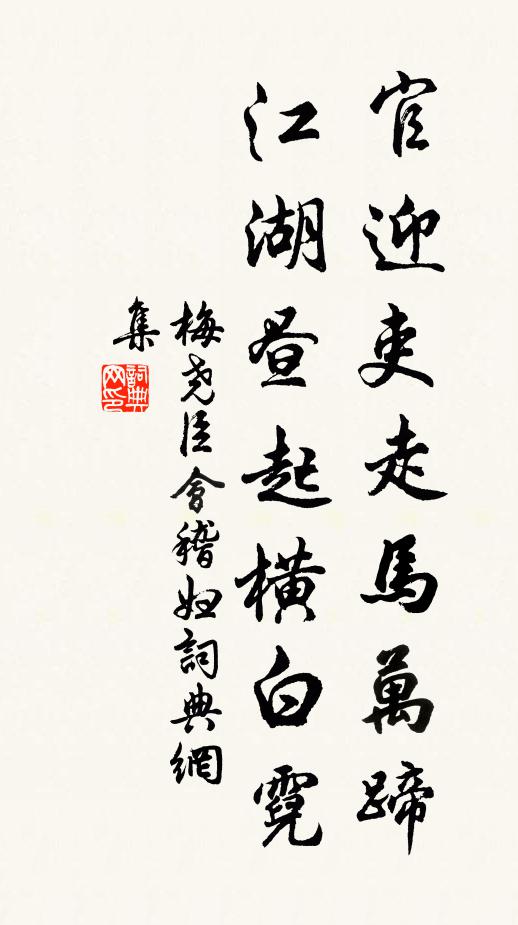 官迎吏走馬萬蹄
江湖晝起橫白霓
梅堯臣會稽妞詞典網
集
詞典
网印